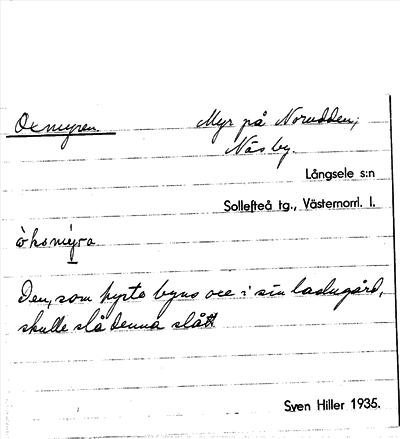 Oxmyren. Myr på Norudden,
Näsby.
Långsele s:n
Sollefteå tg., Västernorrl. l.
òksmýra
Den, som hyste byns oxe i sin ladugård,
skulle slå denna slått
Sven Hiller 1935.